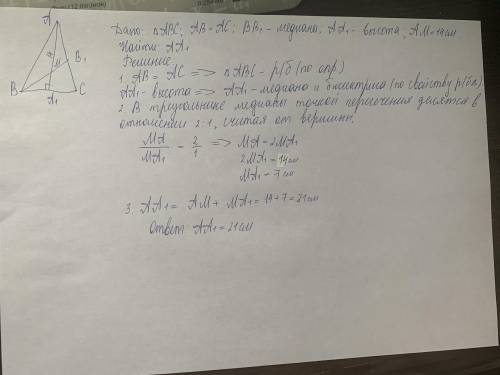 A
B
B₁
C
A₁
M
Дано: △ABC; AB=AC; BB₁ - медиана, AA₁ - высота, AM=14см
Найти: AA₁
Решение
1. AB = AC => △ABC - р/б (по опр)
AA₁ - высота => AA₁ - медиана и биссектриса (по свойству р/б△)
2. В треугольнике медианы точкой пересечения делятся в
отношении 2:1, считая от вершины.
MA/MA₁ - 2/1 => MA=2MA₁
2MA₁ = 14см
MA₁ = 7 см
3. AA₁ = AM + MA₁ = 14+7=21см
Ответ AA₁ = 21см